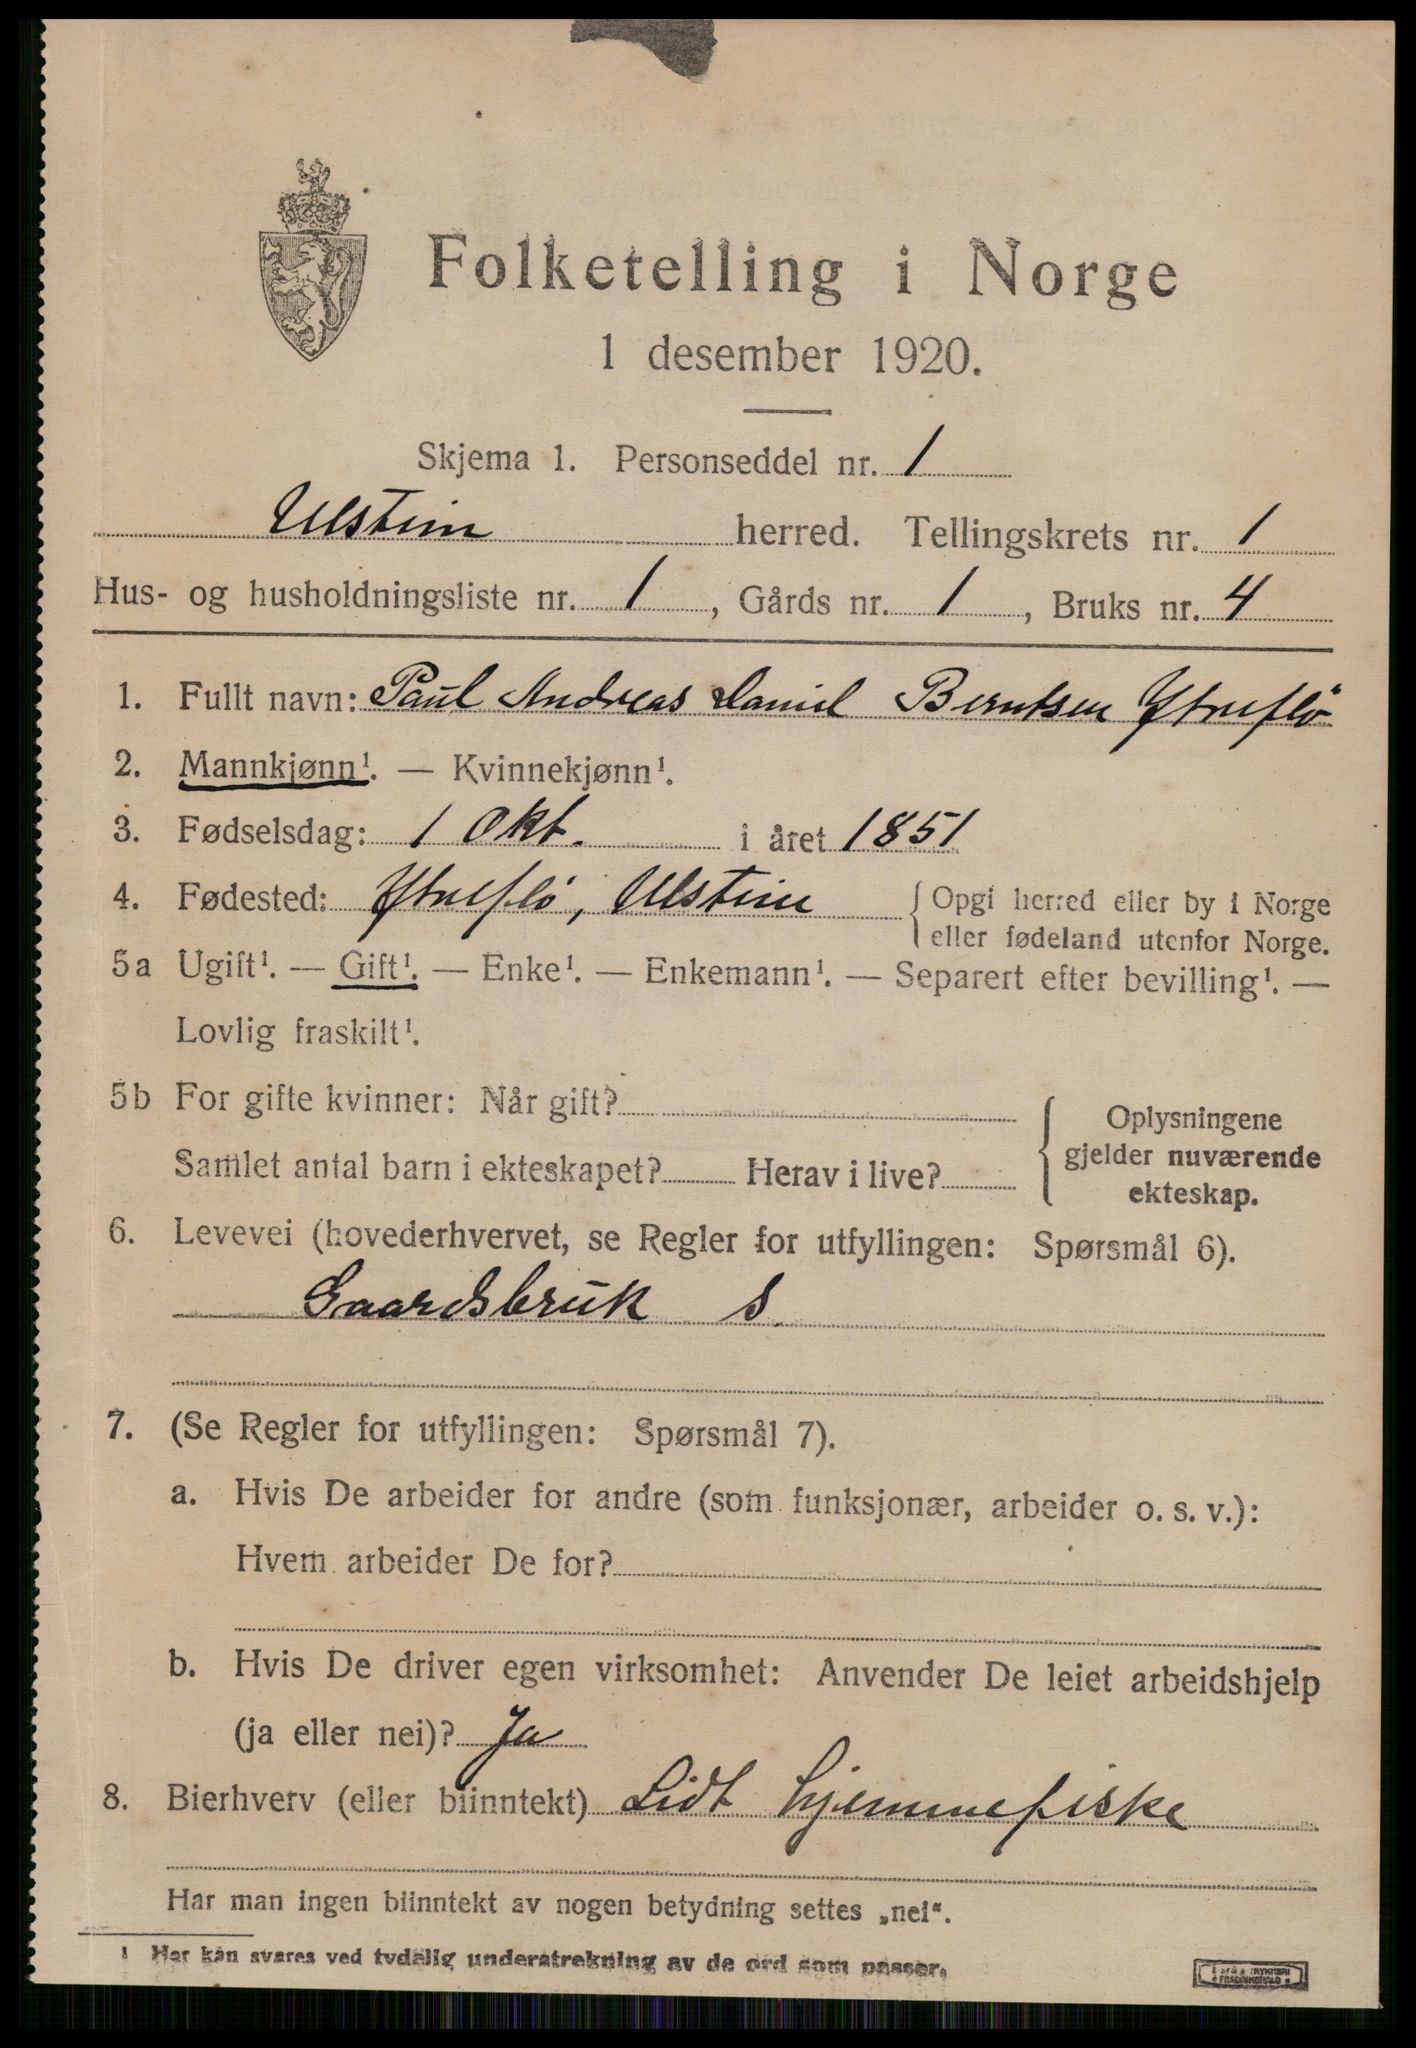 Folketelling i Norge
1 desember 1920.
Skjema 1. Personseddel nr. 1
Ulstein herred. Tellingskrets nr. 1
Hus- og husholdningsliste nr. 1, Gårds nr. 1, Bruks nr. 4
1. Fullt navn: Paul Andreas Daniel Berntsen Ytreflö
2. Mannkjønn¹. — Kvinnekjønn¹.
3. Fødselsdag: 1 Okt. i året 1851
4. Fødested: Ytreflö, Ulstein { Opgi herred eller by i Norge
eller fødeland utenfor Norge.
5a Ugift¹. — Gift¹. — Enke¹. — Enkemann¹. — Separert efter bevilling¹. —
Lovlig fraskilt¹.
5b For gifte kvinner: Når gift?
Samlet antal barn i ekteskapet? Herav i live?
Oplysningene
gjelder nuværende
ekteskap.
6. Levevei (hovederhvervet, se Regler for utfyllingen: Spørsmål 6).
Gaardsbruk S
7. (Se Regler for utfyllingen: Spørsmål 7).
a. Hvis De arbeider for andre (som funksjonær, arbeider o. s. v.):
Hvem arbeider De for?
b. Hvis De driver egen virksomhet: Anvender De leiet arbeidshjelp
(ja eller nei)? Ja
8. Bierhverv (eller biinntekt) Lidt hjemmefiske
Har man ingen biinntekt av nogen betydning settes „nei“.
1 Her kan svares ved tydelig understrekning av de ord som passer.